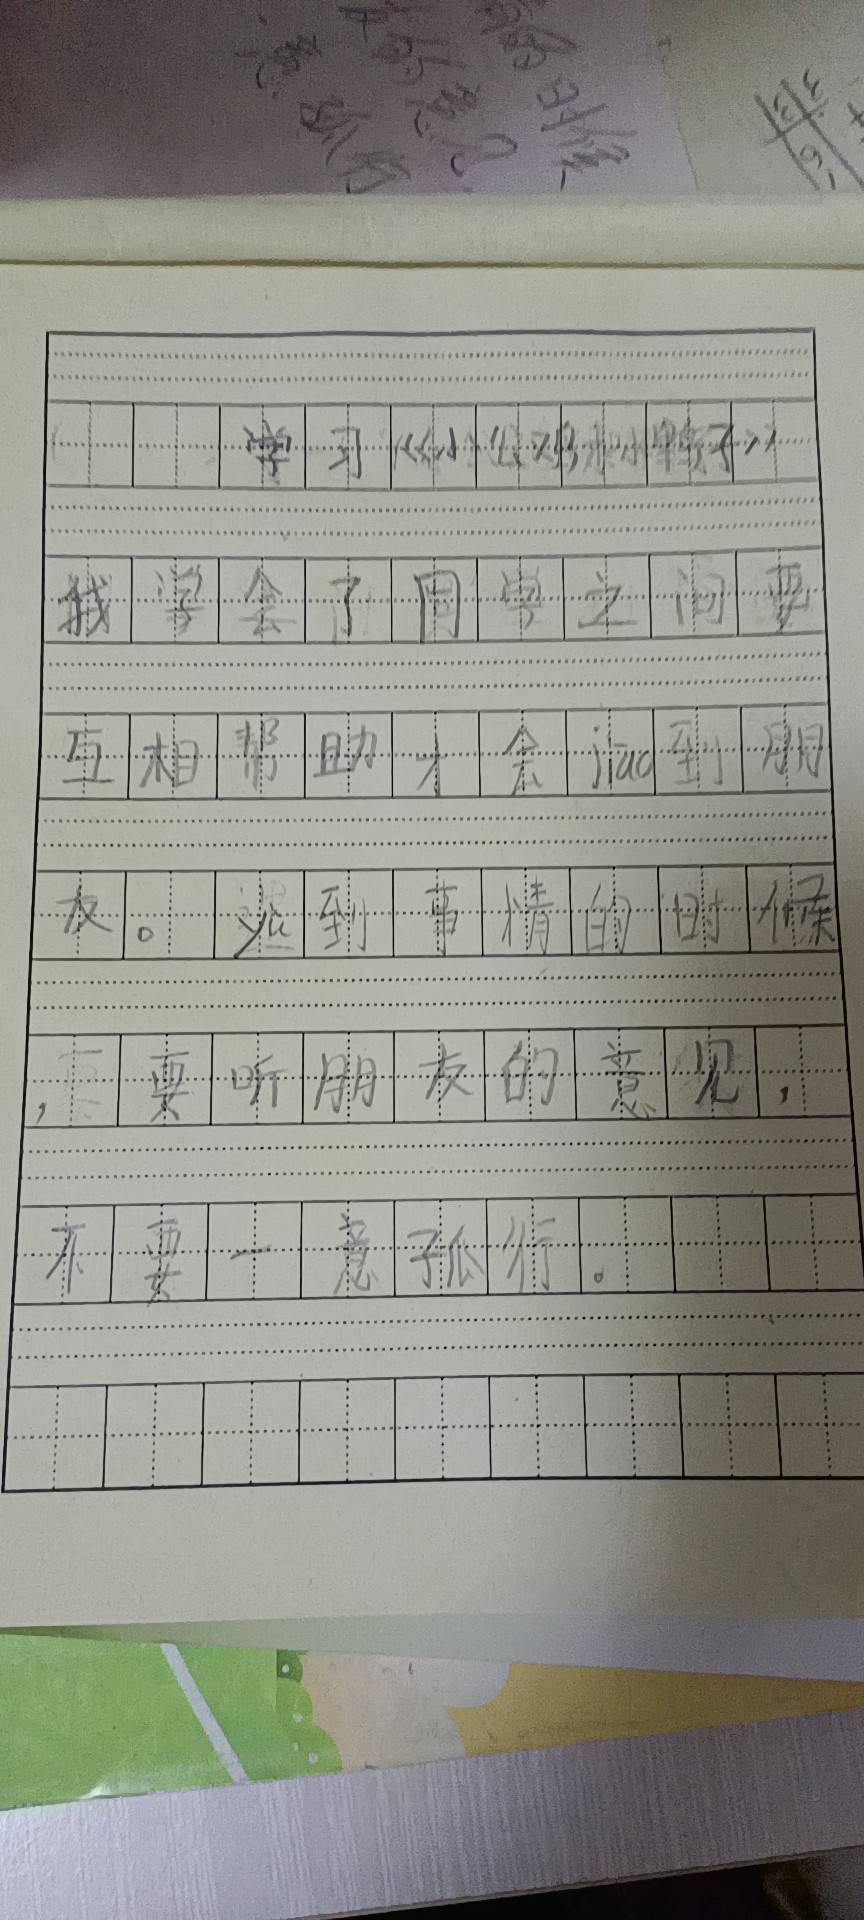 意见
的时候
学习《小公鸡和小鸭子》
我学会了同学之间要
互相帮助才会jiāo到朋
友。yù到事情的时候
,要听朋友的意见,
不要一意孤行。